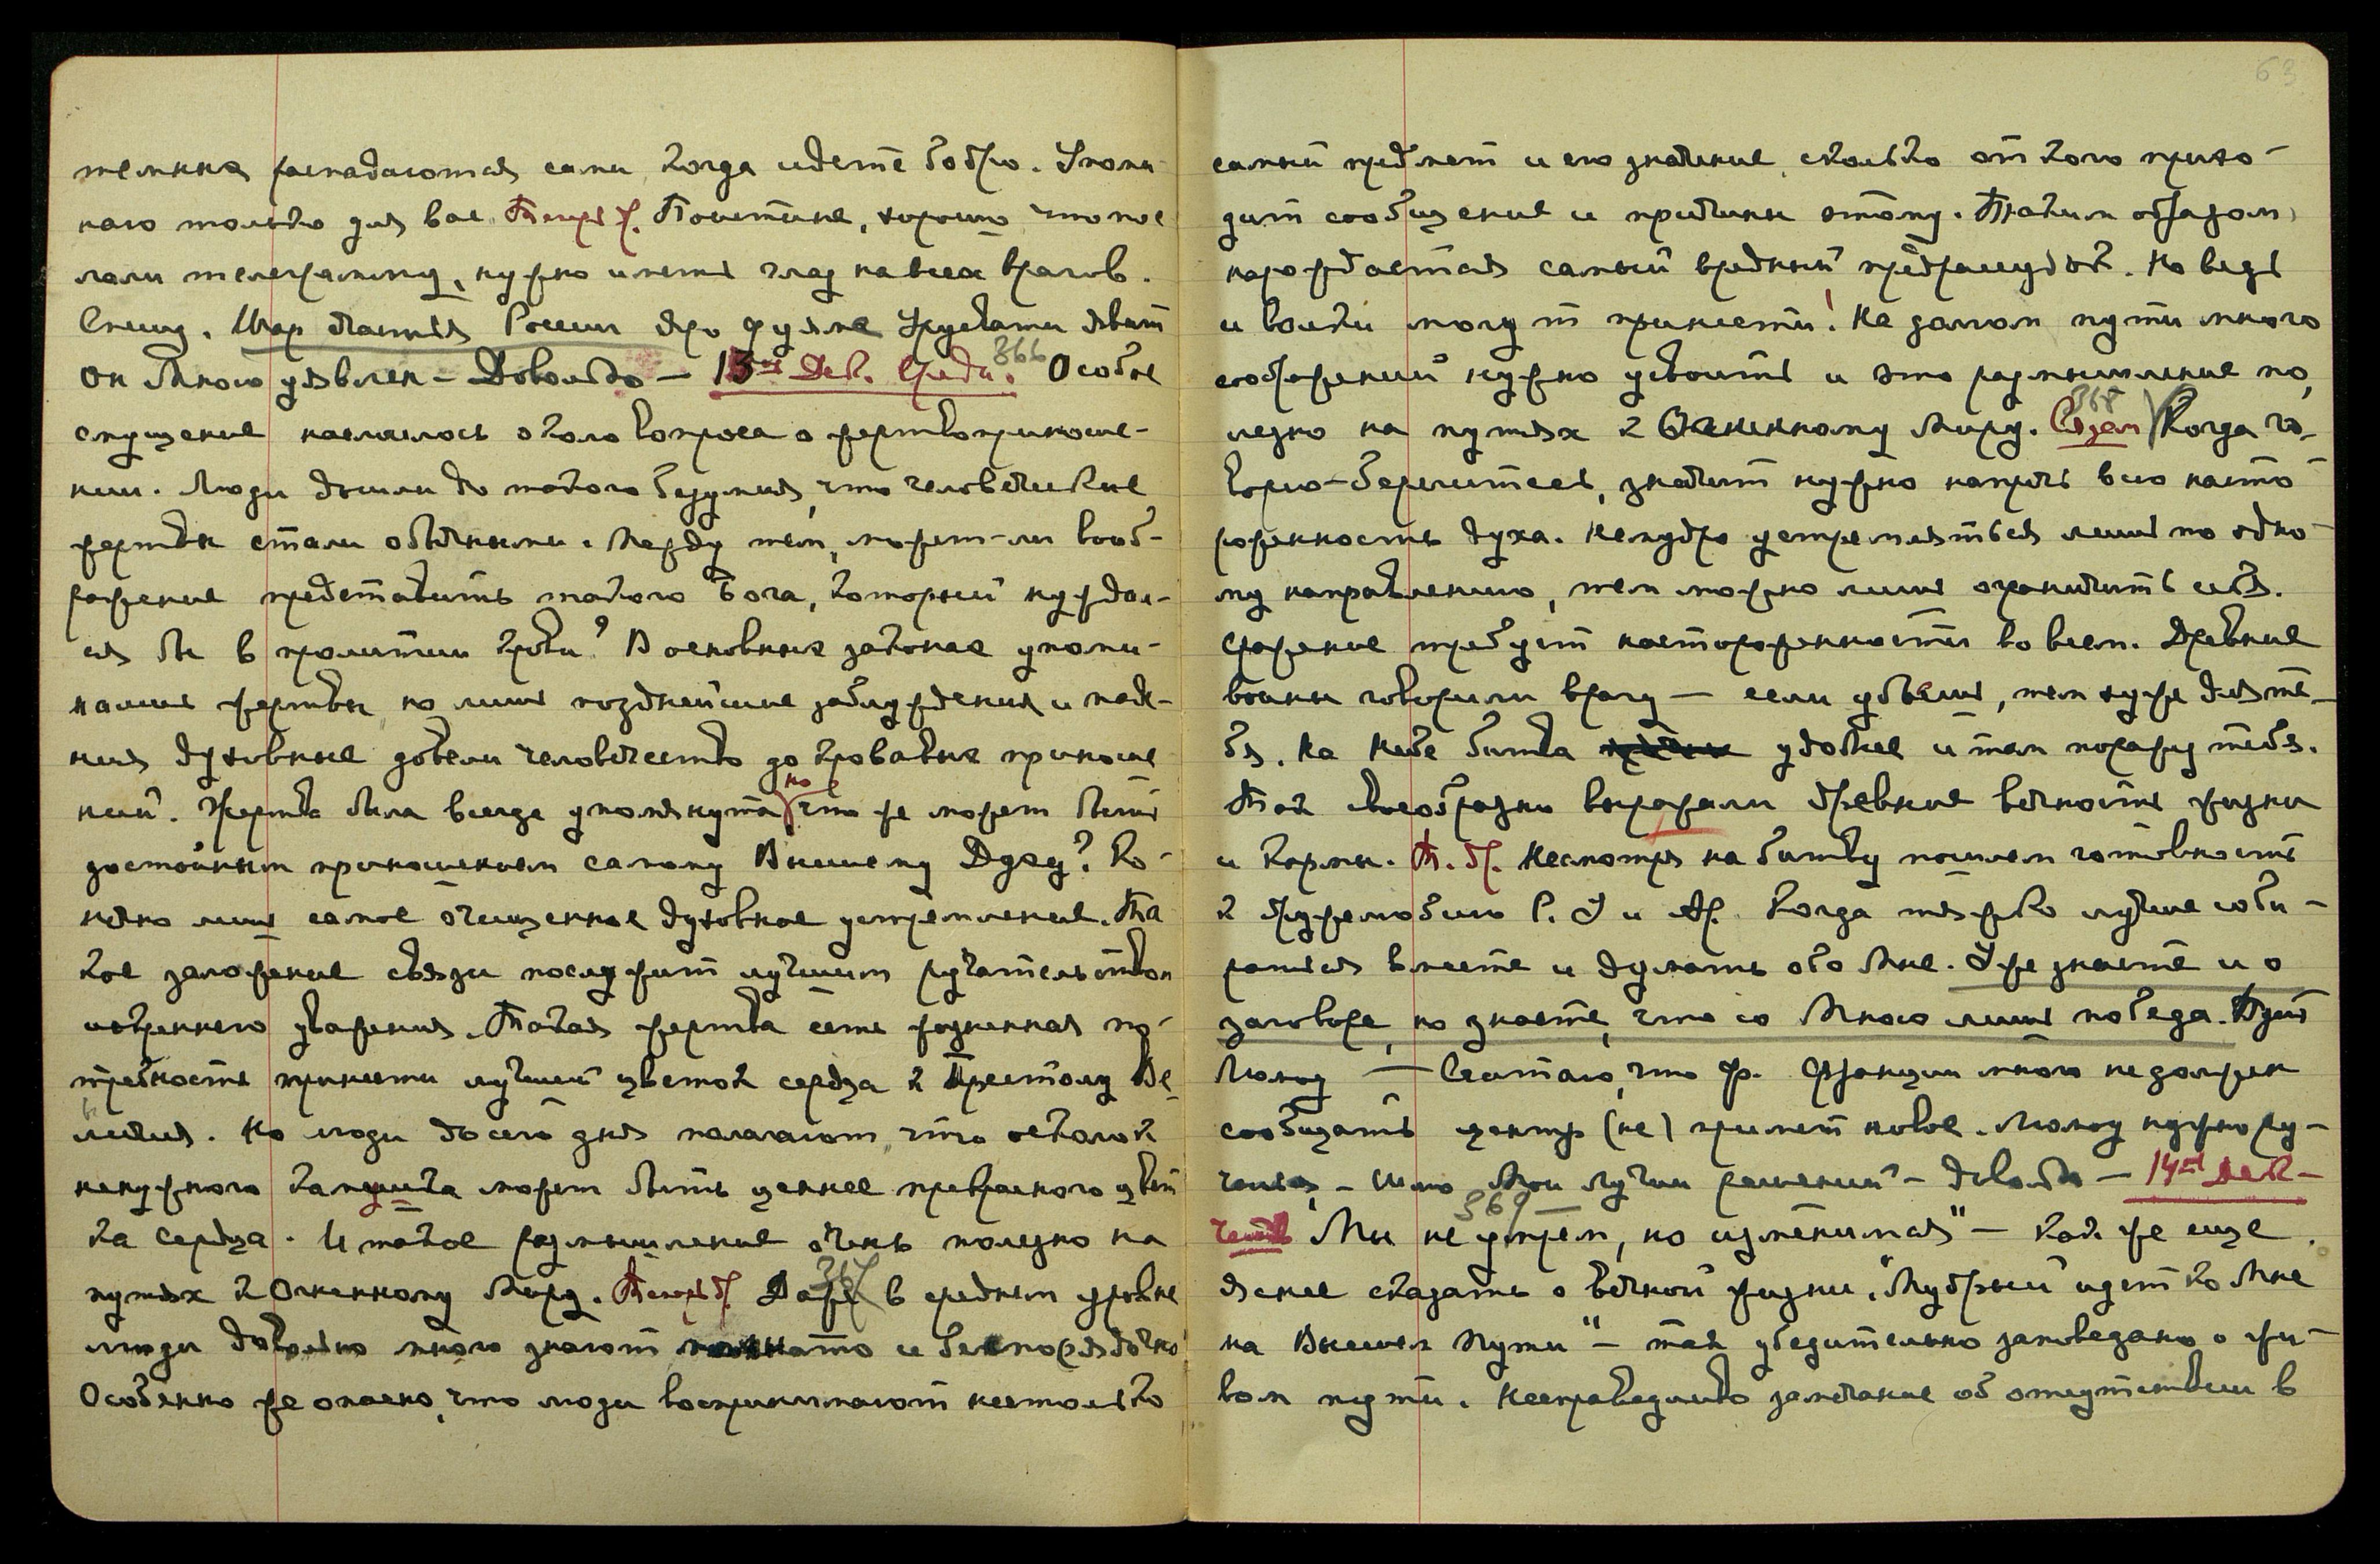 темныя распадаются сами, когда идете бодро. Упоми-
наю только для вас. Теперь др. Поистине, хорошо, что пос
лали телеграмму, нужно иметь глаз на всех врагов.
Спешу. Шар счастья России
он Мною уявлен — Довольно — 13го Дек. Среда. 366 Особое
смущение наслаилось около вопроса о жертвоприноше-
нии. Люди дошли до такого безумия, что человеческие
жертвы стали обычными. Между тем, может-ли вооб-
ражение представить такого Бога, который нуждал-
ся бы в пролитии крови? В основных законах упоми-
нались жертвы, но лишь позднейшие заблуждения и паде-
ния духовные довели человечество до кровавых приноше
ний. Жертва была всегда упомянута, но что же может быть
достойным приношением самому Высшему Духу? Ко-
нечно лишь самое очищенное духовное устремление. Та
кое заложение связи послужит лучшим ручательством
искреннего уважения. Такая жертва есть жизненная по-
требность принести лучший цветок сердца к Престолу Ве
личия. Но люди до сего дня полагают, что осколок
ненужного камушка может быть ценнее прекрасного цвет
ка сердца. И такое размышление очень полезно на
путях к Огненному Миру. Теперь др. 367 Даже в среднем уровне
люди довольно много знают, но смято и беспорядочно.
Особенно же опасно, что люди воспринимают не столько
63
самый предмет и его значение, сколько от кого прихо-
дит сообщение и причины этому. Таким образом,
нарождается самый вредный предрассудок. Но ведь
и волки могут принести! На долгом пути много
соображений нужно усвоить и это размышление по
лезно на путях к Огненному Миру. Сядем 368 Когда го-
ворю — берегитесь, значит нужно напрячь всю насто-
роженность духа. Немудро устремляться лишь по одно-
му направлению, тем можно лишь ограничить себя.
Сражение требует настороженности во всем. Древние
воины говорили врагу — если убьешь, тем хуже для те-
бя. На Небе битва удобнее и там поражу тебя.
Так своеобразно выражали древние вечность жизни
и Кармы. Т. др. Несмотря на битву пошлем готовность
к дружелюбию Р. У и Др. Когда тяжко лучше соби-
раться вместе и думать обо Мне. Уже знаете и о
заговоре, но знаете, что со Мною лишь победа. Пусть
Люмоу — Считаю, что Фр. Франции много не должен
сообщать центр (не) примет новое. Люмоу нужно ру-
чаться — Шлю Мои лучи решений — довольно — 14го Дек —
Четв. 369 "Мы не умрем, но изменимся" — как же еще
яснее сказать о вечной жизни. "Мудрый идет ко Мне
на Высшем Пути" — так убедительно заповедано о жи-
вом пути. Несправедливо замечание об отсутствии в